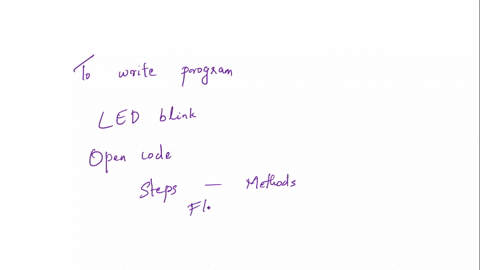 To write porogram
LED blink
Open code
Steps — Methods
Fl